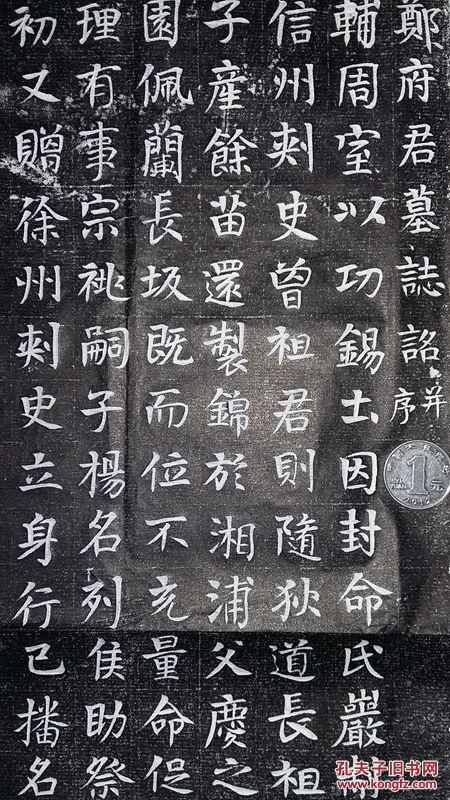 鄭府君墓誌銘并序
輔周室以功錫土因封命氏巖
信州刾史曾祖君則隨狄道長祖
子產餘苗還製錦於湘浦父慶之
園佩蘭長坂既而位不充量命促
理有事宗祧嗣子楊名列侯助祭
初又贈徐州刾史立身行己播名
1元
YUAN
2012
孔夫子旧书网